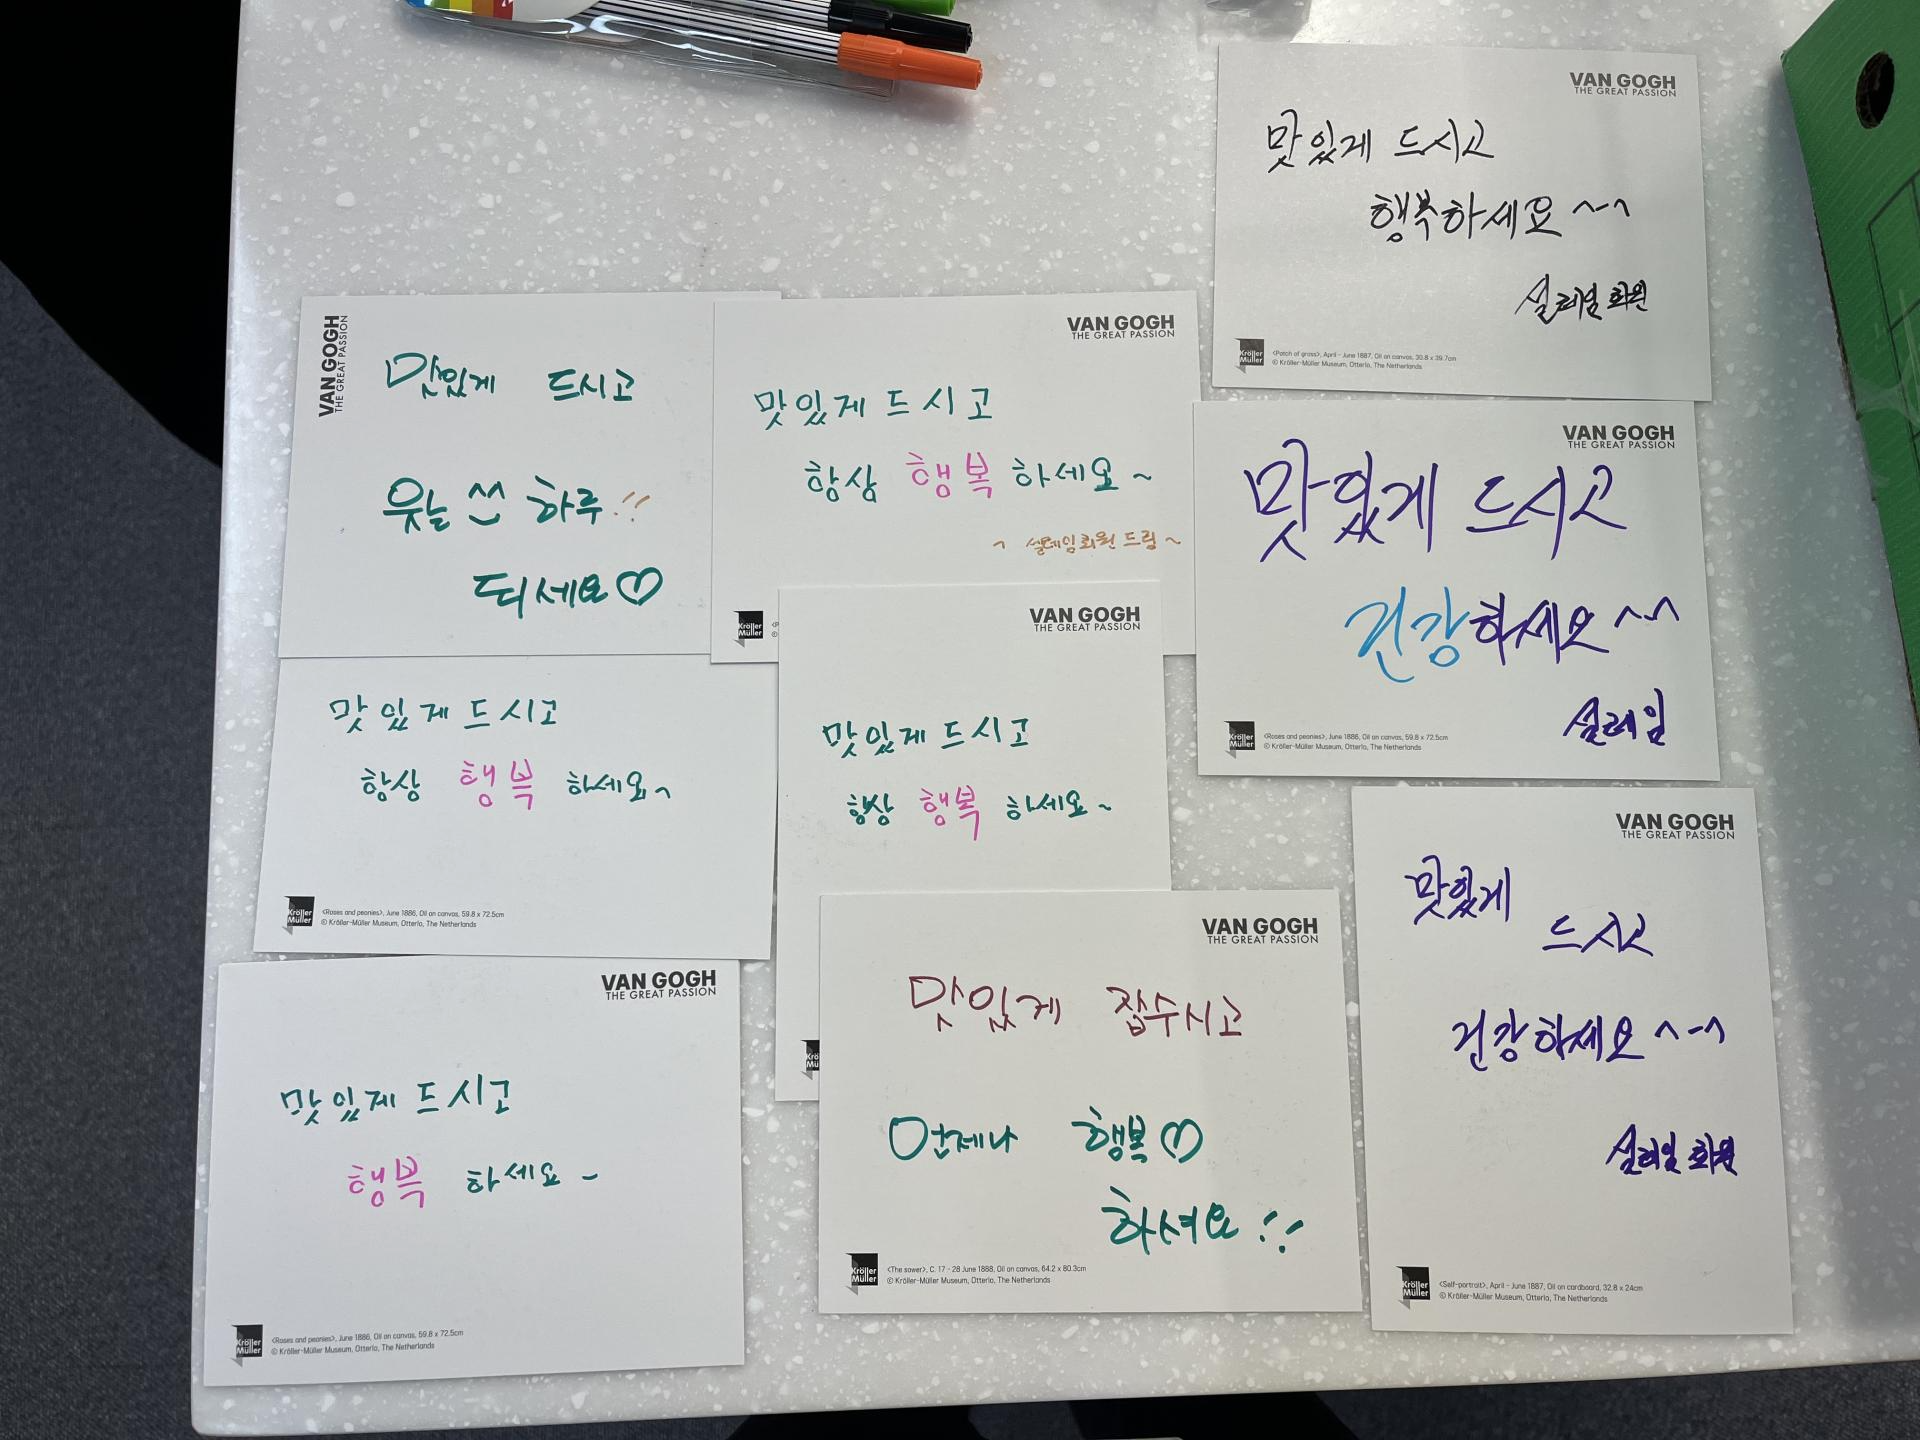 VAN GOGH
THE GREAT PASSION
맛있게 드시고
행복하세요 ^-^
설레임 회원
Kröller
Müller
<Patch of grass>, April - June 1887, Oil on canvas, 30.8 x 39.7cm
© Kröller-Müller Museum, Otterlo, The Netherlands
VAN GOGH
THE GREAT PASSION
맛있게 드시고
웃는 ^^ 하루!!
되세요♡
VAN GOGH
THE GREAT PASSION
맛있게 드시고
항상 행복 하세요~
~ 설레임회원 드림~
Kröller
Müller
VAN GOGH
THE GREAT PASSION
맛있게 드시고
건강하세요 ^-^
설레임
Kröller
Müller
<Roses and peonies>, June 1886, Oil on canvas, 59.8 x 72.5cm
© Kröller-Müller Museum, Otterlo, The Netherlands
맛있게 드시고
항상 행복 하세요~
Kröller
Müller
<Roses and peonies>, June 1886, Oil on canvas, 59.8 x 72.5cm
© Kröller-Müller Museum, Otterlo, The Netherlands
VAN GOGH
THE GREAT PASSION
맛있게 드시고
항상 행복 하세요~
VAN GOGH
THE GREAT PASSION
맛있게
드시고
건강하세요 ^-^
설레임 회원
Kröller
Müller
<Self-portrait>, April - June 1887, Oil on cardboard, 32.8 x 24cm
© Kröller-Müller Museum, Otterlo, The Netherlands
VAN GOGH
THE GREAT PASSION
맛있게 드시고
행복 하세요~
Kröller
Müller
<Roses and peonies>, June 1886, Oil on canvas, 59.8 x 72.5cm
© Kröller-Müller Museum, Otterlo, The Netherlands
VAN GOGH
THE GREAT PASSION
맛있게 잡수시고
언제나 행복♡
하셔요!!
Kröller
Müller
<The sower>, C. 17 - 28 June 1888, Oil on canvas, 64.2 x 80.3cm
© Kröller-Müller Museum, Otterlo, The Netherlands